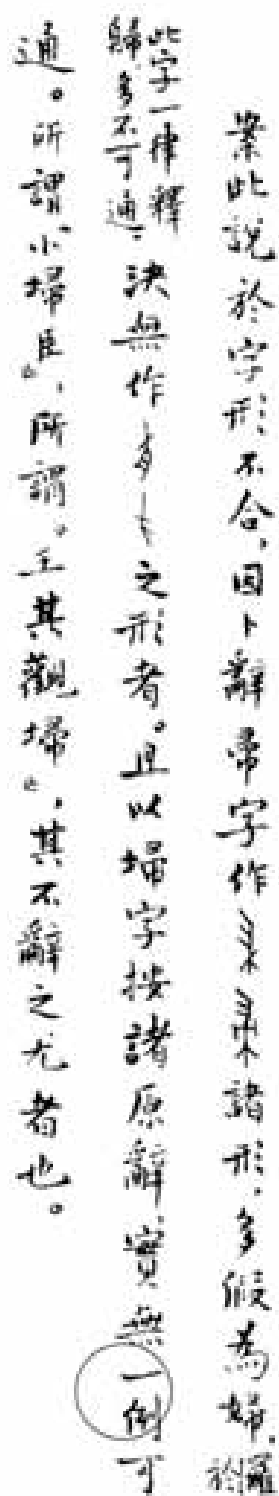 案此說於字形不合，因卜辭帚字作諸形，多假為婦，
於此字一律釋歸，多不可通。決無作之形者。且以埽字按諸原辭，實無一例可
通。所謂“小埽臣”，所謂“王其觀埽”，其不辭之尤者也。